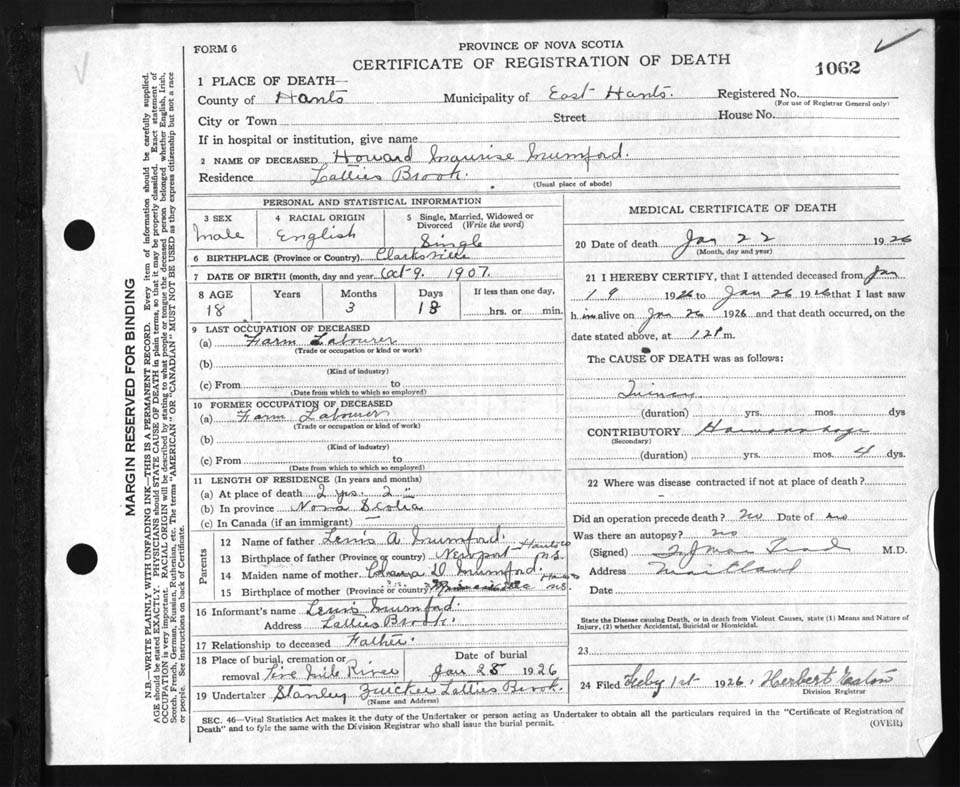 FORM 6
PROVINCE OF NOVA SCOTIA
CERTIFICATE OF REGISTRATION OF DEATH
1062
1 PLACE OF DEATH—
County of Hants Municipality of East Hants. Registered No.
(For use of Registrar General only)
City or Town Street House No.
If in hospital or institution, give name
2 NAME OF DECEASED Howard Maurise Mumford.
Residence Latties Brook.
(Usual place of abode)
PERSONAL AND STATISTICAL INFORMATION
3 SEX 4 RACIAL ORIGIN 5 Single, Married, Widowed or Divorced (Write the word)
Male English Single
6 BIRTHPLACE (Province or Country) Clarksville
7 DATE OF BIRTH (month, day and year Oct 9. 1907.
8 AGE Years Months Days If less than one day,
18 3 13 hrs. or min.
9 LAST OCCUPATION OF DECEASED
(a) Farm Labourer
(Trade or occupation or kind or work)
(b)
(Kind of industry)
(c) From to
(Date from which to which so employed)
10 FORMER OCCUPATION OF DECEASED
(a) Farm Labourer
(Trade or occupation or kind of work)
(b)
(Kind of industry)
(c) From to
(Date from which to which so employed)
11 LENGTH OF RESIDENCE (In years and months)
(a) At place of death 2 yrs. 2 "
(b) In province Nova Scotia
(c) In Canada (if an immigrant)
Parents
12 Name of father Lewis A. Mumford.
13 Birthplace of father (Province or country) Newport Hants co N.S.
14 Maiden name of mother D. Mumford.
15 Birthplace of mother (Province or country) Hants N.S.
16 Informant's name Lewis Mumford.
Address Latties Brook.
17 Relationship to deceased Father.
18 Place of burial, cremation or removal Five Mile River Date of burial Jan 28 1926
19 Undertaker Stanley Latties Brook.
(Name and Address)
MEDICAL CERTIFICATE OF DEATH
20 Date of death Jan 22 1926
(Month, day and year)
21 I HEREBY CERTIFY, that I attended deceased from Jan
19 1926 to Jan 26 1926 that I last saw
h im alive on Jan 26 1926 and that death occurred, on the
date stated above, at 12 P m.
The CAUSE OF DEATH was as follows:
Quinsy
(duration) yrs. mos. dys
CONTRIBUTORY Haemorrhage
(Secondary)
(duration) yrs. mos. 4 dys.
22 Where was disease contracted if not at place of death?
Did an operation precede death? no Date of no
Was there an autopsy? no
(Signed) M.D.
Address Maitland
Date
State the Disease causing Death, or in death from Violent Causes, state (1) Means and Nature of Injury, (2) whether Accidental, Suicidal or Homicidal.
23
24 Filed Feby 1st 1926. Herbert Eaton
Division Registrar
SEC. 46—Vital Statistics Act makes it the duty of the Undertaker or person acting as Undertaker to obtain all the particulars required in the "Certificate of Registration of
Death" and to fyle the same with the Division Registrar who shall issue the burial permit.
(OVER)
MARGIN RESERVED FOR BINDING
N.B.—WRITE PLAINLY WITH UNFADING INK—THIS IS A PERMANENT RECORD. Every item of information should be carefully supplied.
AGE should be stated EXACTLY. PHYSICIANS should STATE CAUSE OF DEATH in plain terms, so that it may be properly classified. Exact statement of
OCCUPATION is very important. RACIAL ORIGIN will be described by stating to what people or tongue the deceased person belonged whether English, Irish,
Scotch, French, German, Russian, Ruthenian, etc. The terms "AMERICAN" OR "CANADIAN" MUST NOT BE USED as they express citizenship but not a race
or people. See instructions on back of Certificate.